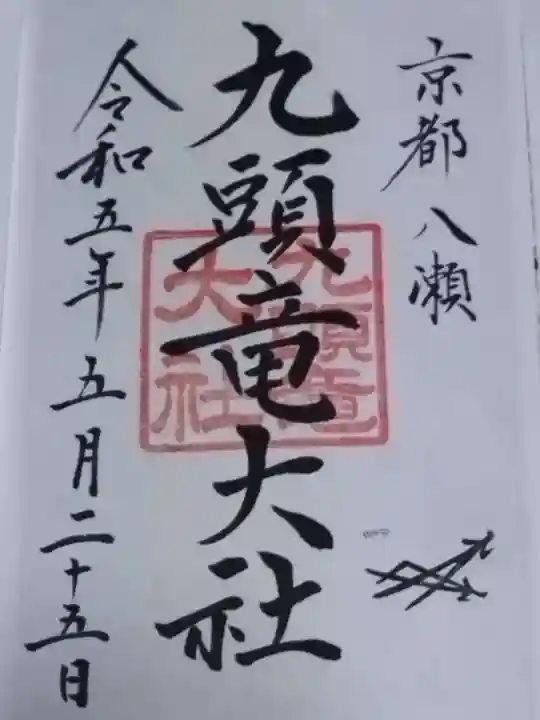 京都八瀬
九頭竜大社
九頭竜
大社
令和五年五月二十五日